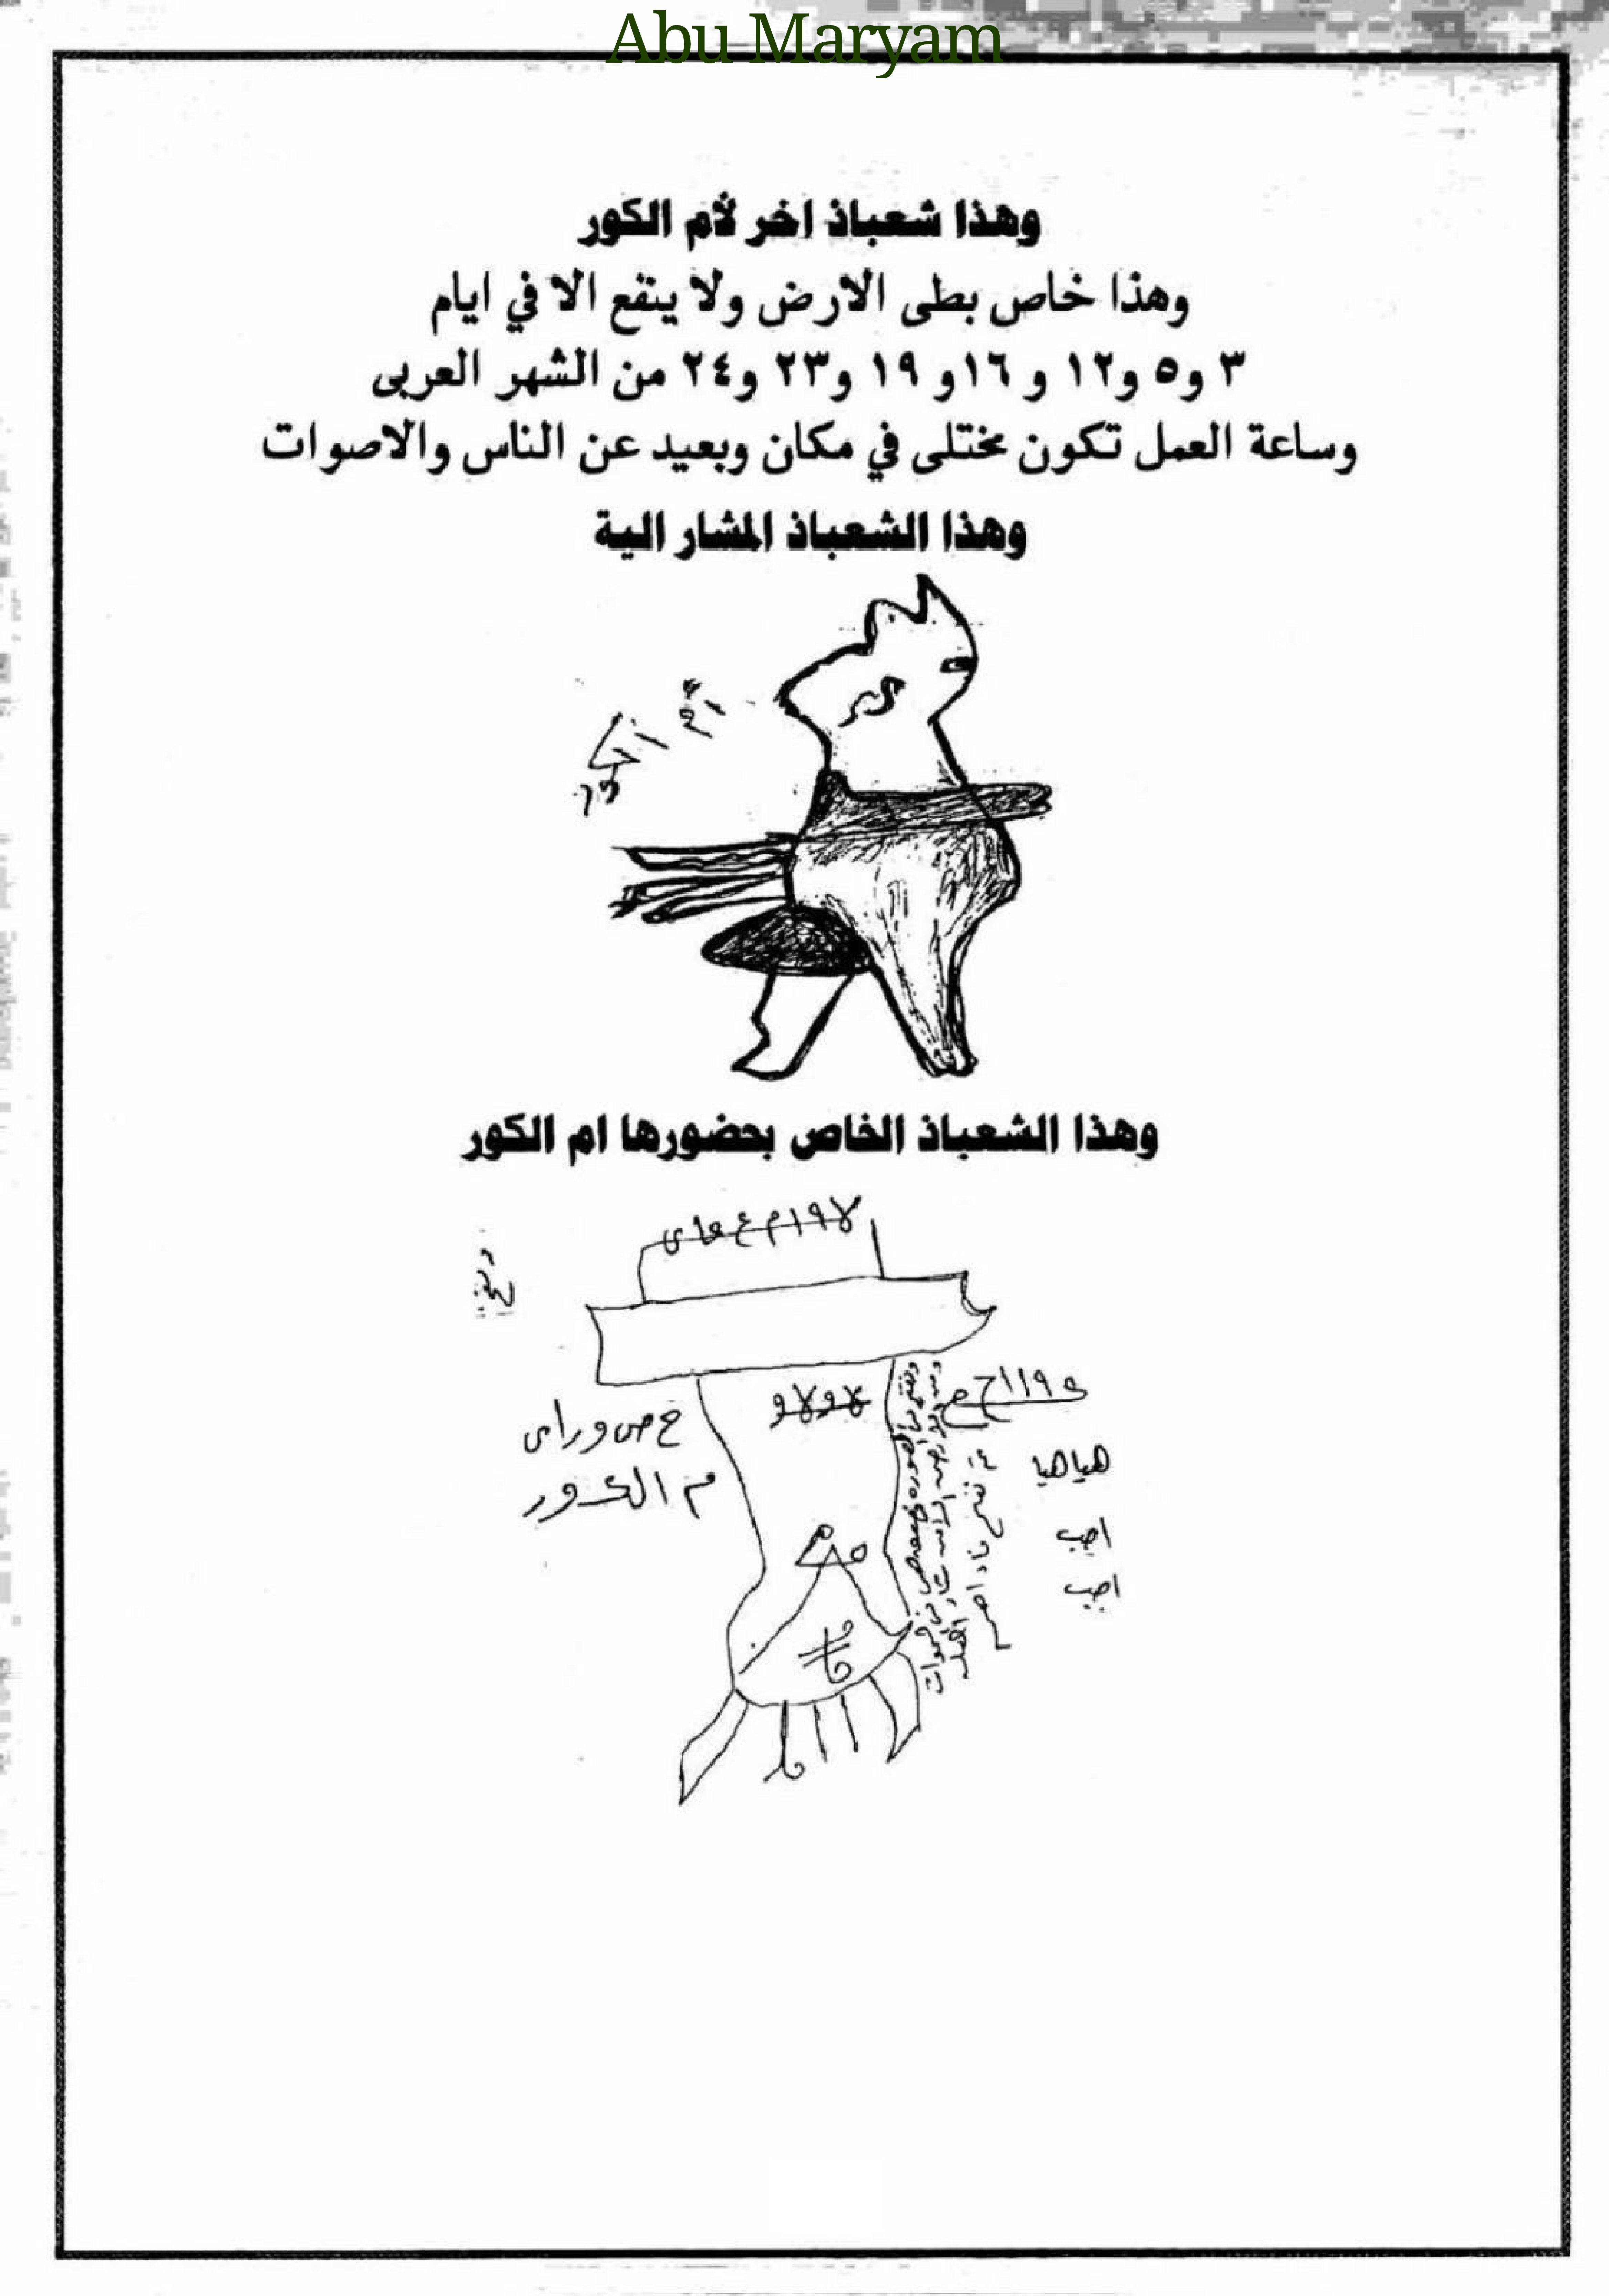 Abu Maryam
وهذا شعباذ اخر لأم الكور
وهذا خاص بطى الارض ولا ينفع الا في ايام
٣ و٥ و١٢ و ١٦و ١٩ و٢٣ و٢٤ من الشهر العربى
وساعة العمل تكون مختلى في مكان وبعيد عن الناس والاصوات
وهذا الشعباذ المشار الية
أم الكور
وهذا الشعباذ الخاص بحضورها ام الكور
م الكور
هياهيا
اجب
اجب